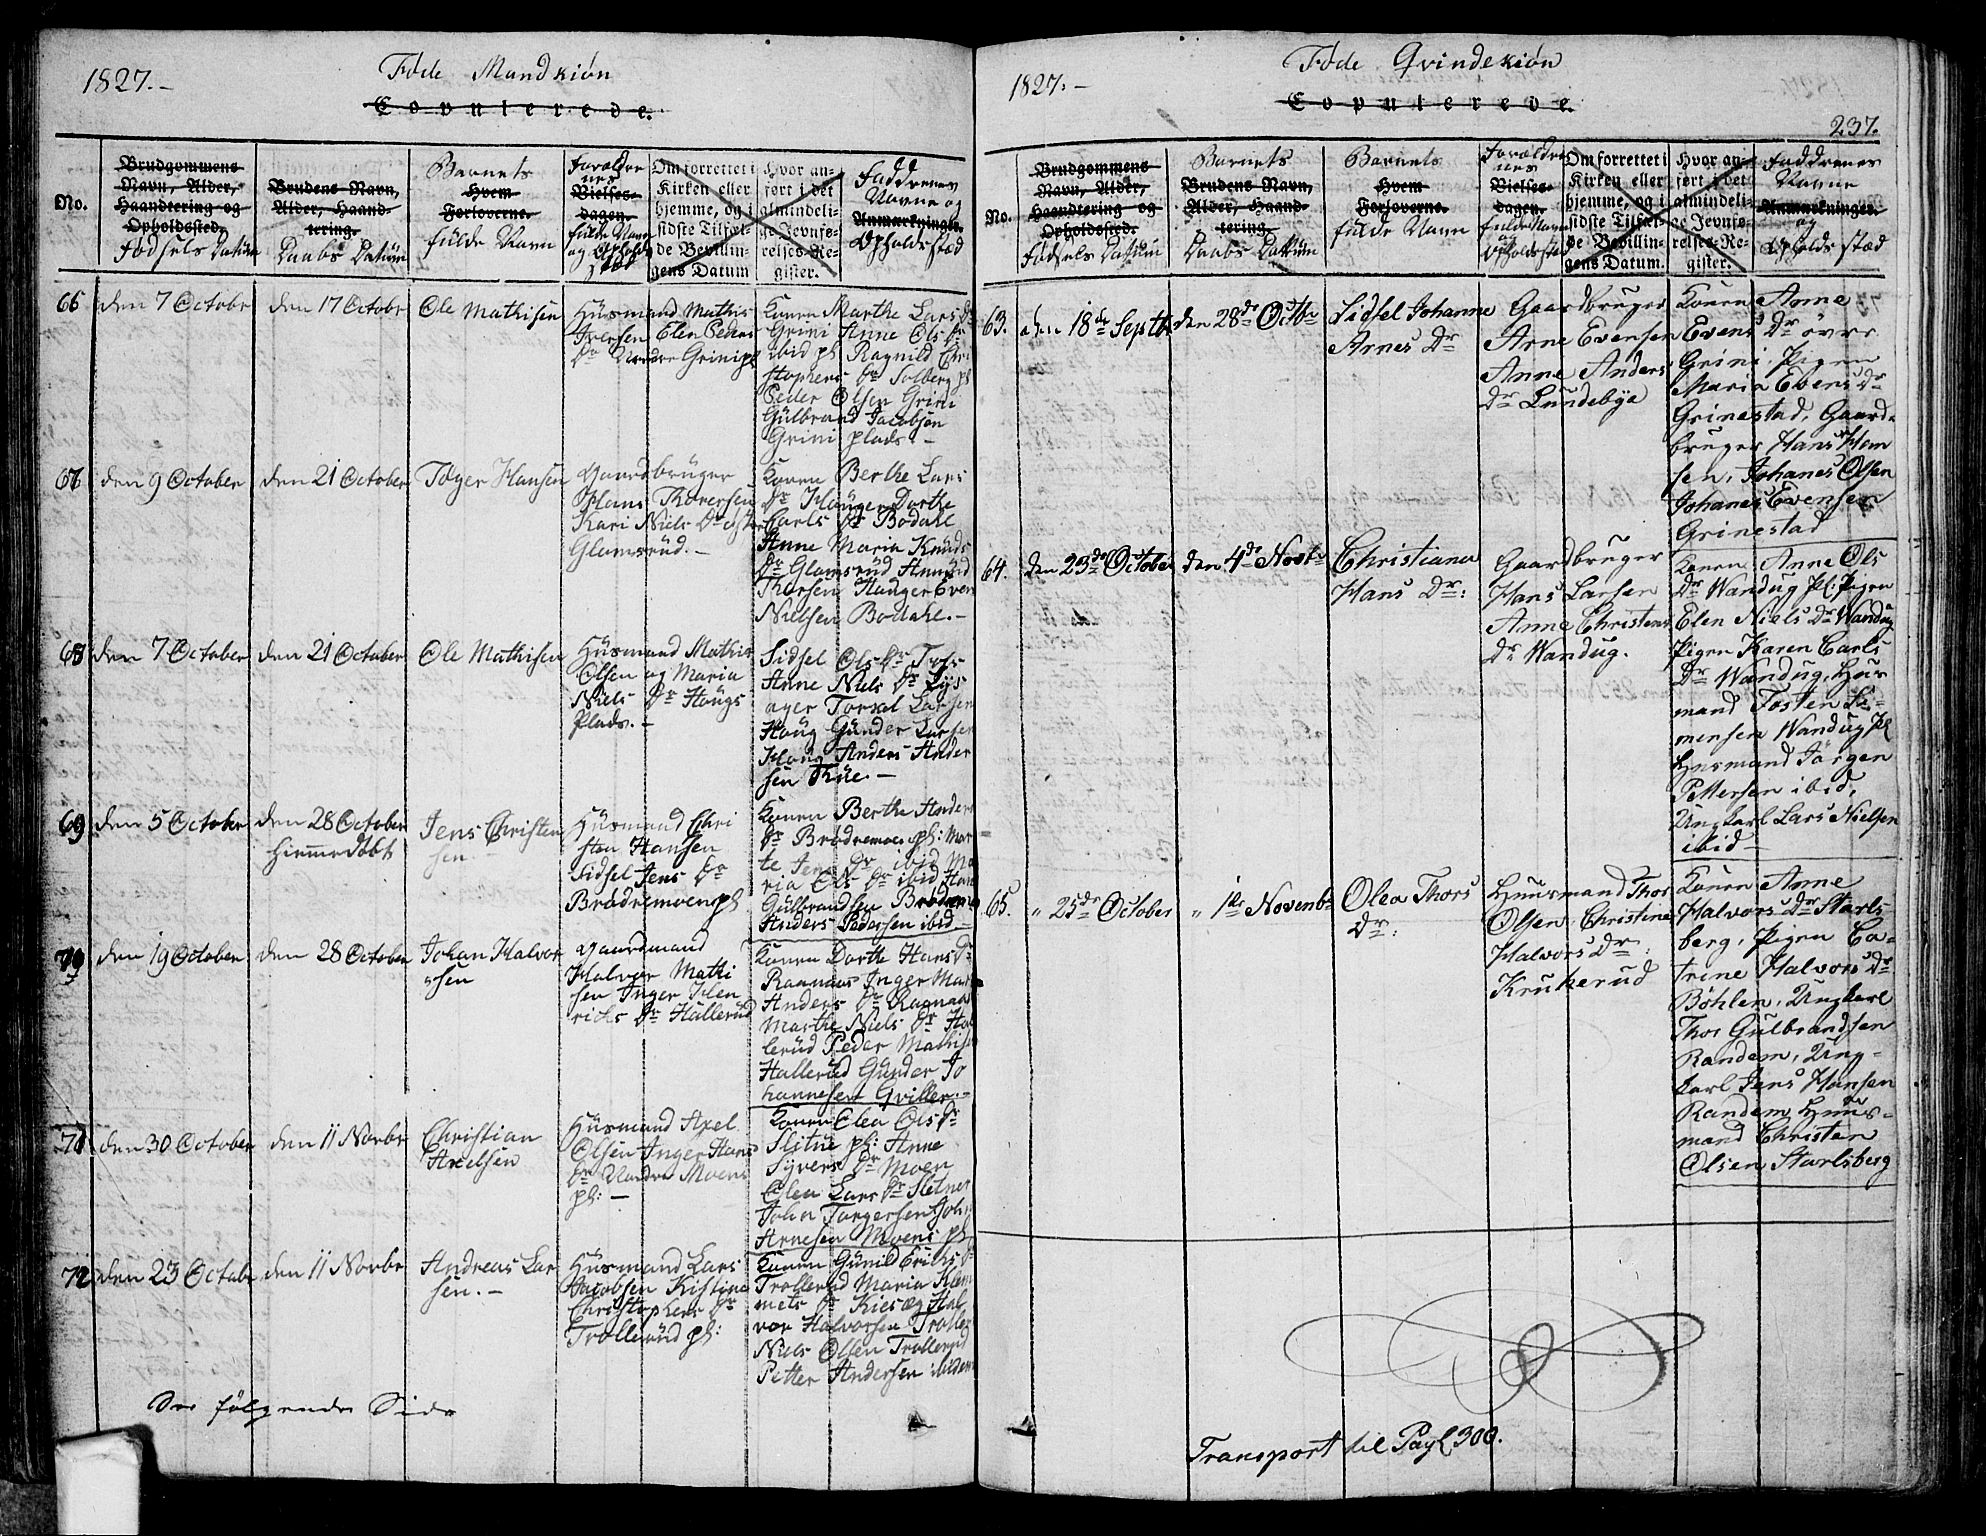 1827.-
Føde Mandkiøn
Copulerede.
No.
Brudgommens
Navn, Alder,
Haandtering og
Opholdssted.
Fødsels Datum
Brudens Navn,
Alder, Haand-
tering.
Daabs Datum
Barnets
Hvem
Forloverne.
fulde Navn
Forældre
nes
Vielses-
dagen.
fulde Navn
og Opholds
stæd
Om forrettet i
Kirken eller
hjemme, og i
sidste Tilfæl-
de Bevillin-
gens Datum
Hvor an-
ført i det
almindeli-
ge Jevnfø-
relses-Re-
gister.
Faddrenes
Navne og
Anmærkninger.
Opholdstæd
66
den 7 Octobr
den 17 Octobr
Ole Mathisen
Husmand Mathis
Iversen Elen Peders
Dr Nordre Grini pl
Konen Marthe Lars Dr
Grini Anne Ols Dr
ibid pl Ragnild Chri
stophers Dr Solberg pl
Peder Olsen Grini
Gulbrand Jacobsen
Grini plads.-
67
den 9 October
den 21 October
Toger Hansen
Gaardbruger
Hans Thoresen
Kari Niels Dr
Glamsrud.-
Konen Berthe Lars
Dr Hauger Dorthe
Carls Dr Bodahl
Anne Maria Knuds
Dr Glamsrud Amund
Thorsen Hauger Even
Nielsen Bodahl.-
68
den 7 October
den 21 October
Ole Mathisen
Husmand Mathis
Olsen og Maria
Niels Dr Haugs
plads.-
Sidsel Ols Dr
Anne Niels Dr Lys
ager Torsel Larsen
Haug Gunder Larsen
Haug Anders Ander
sen Krüe.-
69
den 5 October
den 28 October
hiemmedøbt
Jens Christen
sen.-
Husmand Chri
sten Hansen
Sidsel Jens Dr
Brødremoen pl
Konen Berthe Anders
Dr Brødremoen pl: Mar
te Jens Dr ibid Ma
ria Ols Dr ibid Hans
Gulbrandsen Brødremo
Anders Pedersen ibid.-
70
den 19 October
den 28 October
Johan Halvor
sen
Gaardmand
Halvor Mathi
sen Inger Hen
richs Dr Hallerud
Konen Dorthe Hans Dr
Ramnæs Inger Mar
Anders Dr Ragnaa
Marthe Niels Dr Hal
lerud Peder Mathis
Hallerud Gunder Jo
hannesen Qviller.-
71
den 30 October
den 11 Novbr
Christian
Axelsen
Husmand Axel
Olsen Inger Hans
Dr Nordre Moens
pl: -
Konen Elea Ols Dr
Slitue pl: Anne
Syvers Dr Moen
Olea Lars Dr Sletner
John Torgersen John
Arnesen Moens pl
72
den 23 Octobr
den 11 Novbr
Andreas Lar
sen.-
Husmand Lars
Jacobsen Kistine
Christophers Dr
Trollerud pl:
Konen Gunild Erichs Dr
Trollerud Maria Klem
mets Dr Kiesæg Hal
vor Halvorsen Troller
Niels Olsen Trollerud
Petter Andersen ibidem
See følgende Side
1827.-
Føde Qvindekiøn
Copulerede.
237.
No.
Brudgommens
Navn, Alder,
Haandtering og
Opholdssted.
Fødsels Datum
Barnets
Brudens Navn,
Alder, Haand-
tering.
Daabs Dattum
Barnets
Hvem
Forloverne.
fulde Navn
Forældre
nes
Vielses-
dagen.
fulde Navn
og
Opholdsstæd
Om forrettet i
Kirken eller
hjemme, og i
sidste Tilfæl-
de Bevillin-
gens Datum.
Hvor an-
ført i det
almindeli-
ge Jevnfø-
relses-Re-
gister.
Faddrenes
Navne
Anmærkninger.
og
Opholds stæd
63.
den 18de Septbr
den 28de Octbr
Sidsel Johanne
Arnes Dr
Gaardbruger
Arne Evensen
Anne Anders
Dr Lundebye
Konen Anne
Evens Dr øvre
Grini, Pigen
Maria Evens Dr
Grinestad, Gaard-
bruger Hans Hem
sen, Johanes Olsen
Johanes Evensen
Grinestad
64.
den 23de October
den 4de Novbr
Christiana
Hans Dr:
Gaardbruger
Hans Larsen
Anne Christens
Dr Wandug.
Konen Anne Ols
Dr Wandug pl: Pigen
Elen Niels Dr Wandug
Pigen Karen Carls
Dr Wandug, Huus
mand Tosten Si-
mensen Wandug pl
Husmand Jørgen
Pettersen ibid,
Ungkarl Lars Nielsen
ibid-
65.
" 25de October
" 1ste Novenbr
Olea Thors
Dr:
Huusmand Thor
Olsen Christine
Halvors Dr:
Krukerud
Konen Anne
Halvors Dr Starls-
berg, Pigen Ca-
trine Halvors Dr
Bøhlen, Ungkarl
Thor Gulbrandsen
Randem, Ung-
karl Jens Hansen
Randem Huus-
mand Christen
Olsen Starlsberg
Transport til Pag 300.